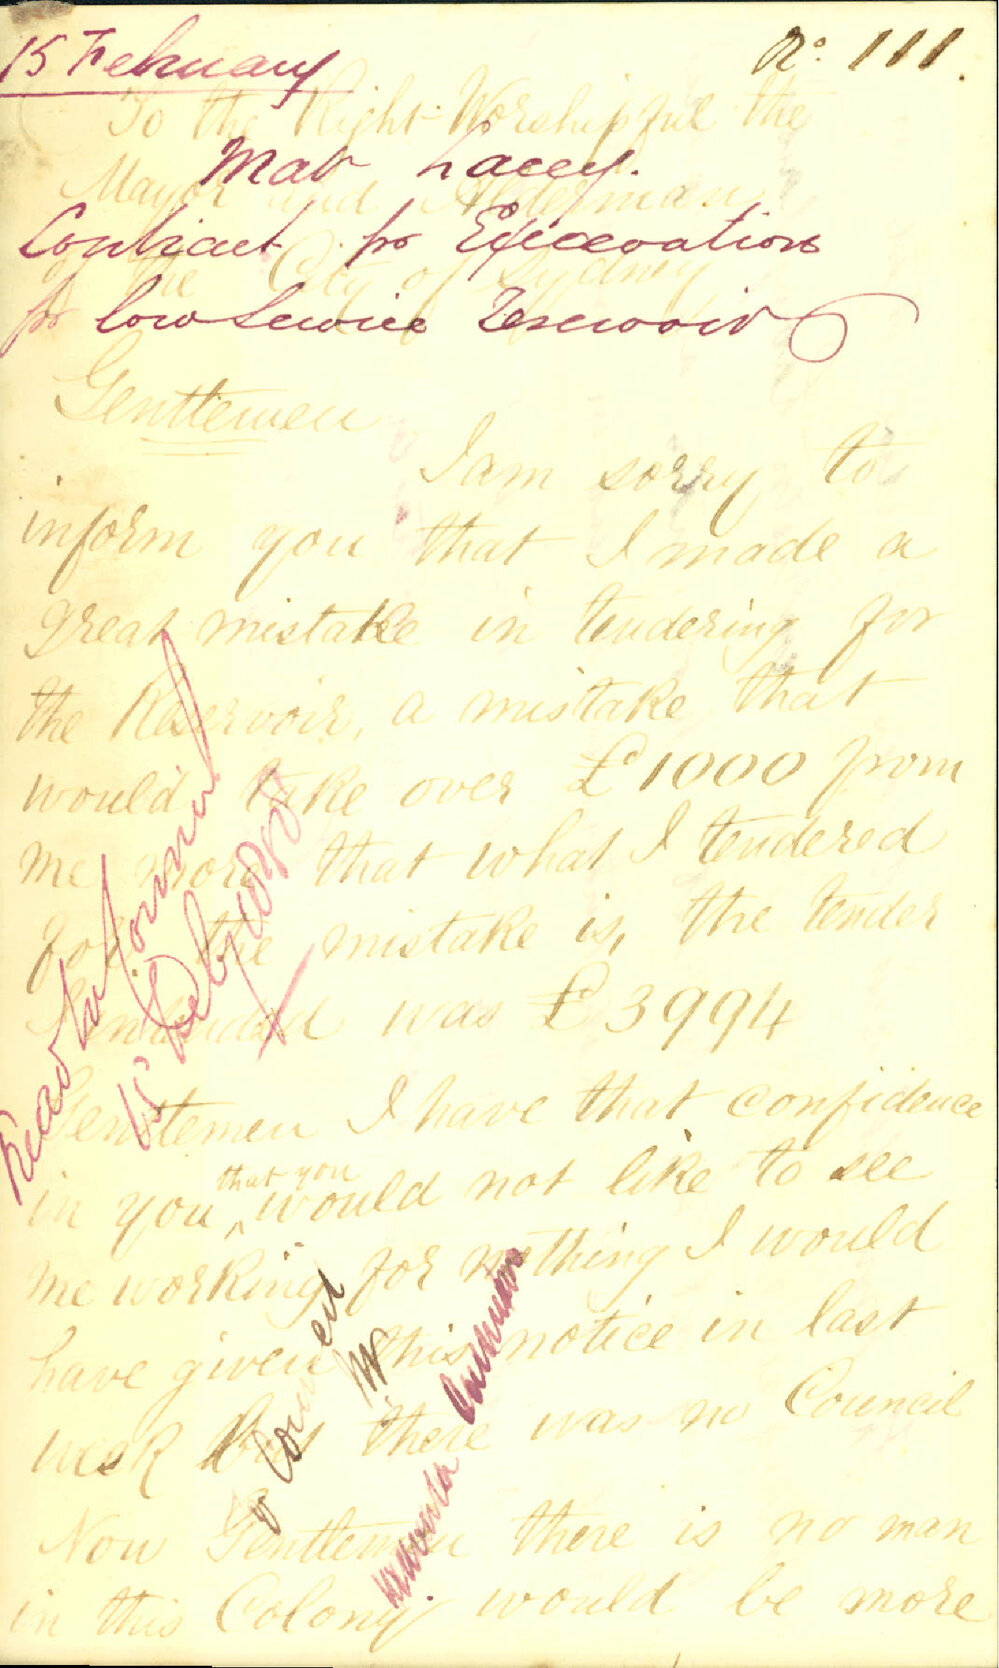 15 February
No. 111.
To the Right Worshipful the
Matw Lacey.
Mayor and Alderman
Contract for Excavation
of the City of Sydney
for low Service Reservoir
Gentlemen
I am sorry to
inform you that I made a
great mistake in tendering for
the Reservoir, a mistake that
would take over £1000 from
me more that what I tendered
for. the mistake is, the tender
I intended was £3994
Gentlemen I have that confidence
in you that you would not like to see
me working for nothing I would
have given this notice in last
week But there was no Council
Now Gentlemen there is no man
in this Colony would be more
Read in Council
15 Feby 1858
Council